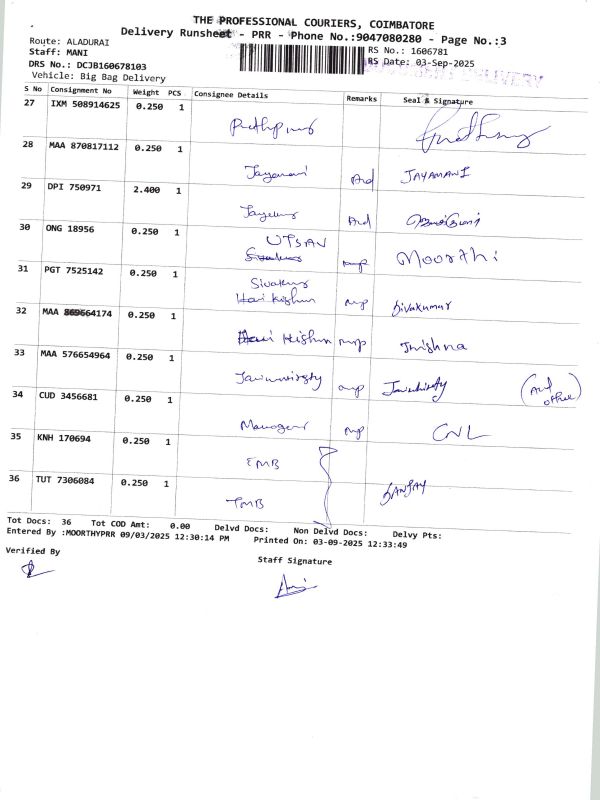 THE PROFESSIONAL COURIERS, COIMBATORE
Delivery Runsheet - PRR - Phone No.:9047080280 - Page No.:3
Route: ALADURAI
RS No.: 1606781
Staff: MANI
RS Date: 03-Sep-2025
DRS No.: DCJB160678103
Vehicle: Big Bag Delivery
S No Consignment No Weight PCS Consignee Details Remarks Seal & Signature
27 IXM 508914625 0.250 1
28 MAA 870817112 0.250 1
Jayamani JAYAMANI
29 DPI 750971 2.400 1
30 ONG 18956 0.250 1
UTSAV
Sivakumar mp Moorthi
31 PGT 7525142 0.250 1
Sivakumar
Hari Kishun mp Sivakumar
32 MAA 869664174 0.250 1
Hari Kishun mp Krishna
33 MAA 576654964 0.250 1
mp
34 CUD 3456681 0.250 1
Manager mp CNL
35 KNH 170694 0.250 1
TMB
36 TUT 7306084 0.250 1
TMB SANJAY
Tot Docs: 36 Tot COD Amt: 0.00 Delvd Docs: Non Delvd Docs: Delvy Pts:
Entered By :MOORTHYPRR 09/03/2025 12:30:14 PM Printed On: 03-09-2025 12:33:49
Verified By
Staff Signature